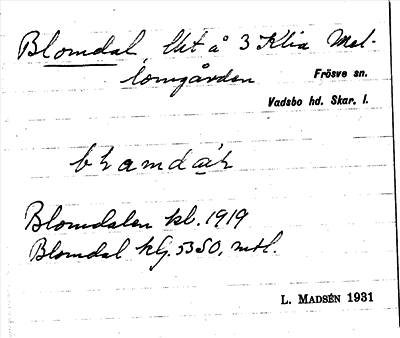 Blomdal, lht å 3 Klia Mel-
lomgården
Frösve sn.
Vadsbo hd. Skar. l.
Blomdalen kb. 1919
Blomdal kg. 53 SO, mtl.
L. MADSÉN 1931